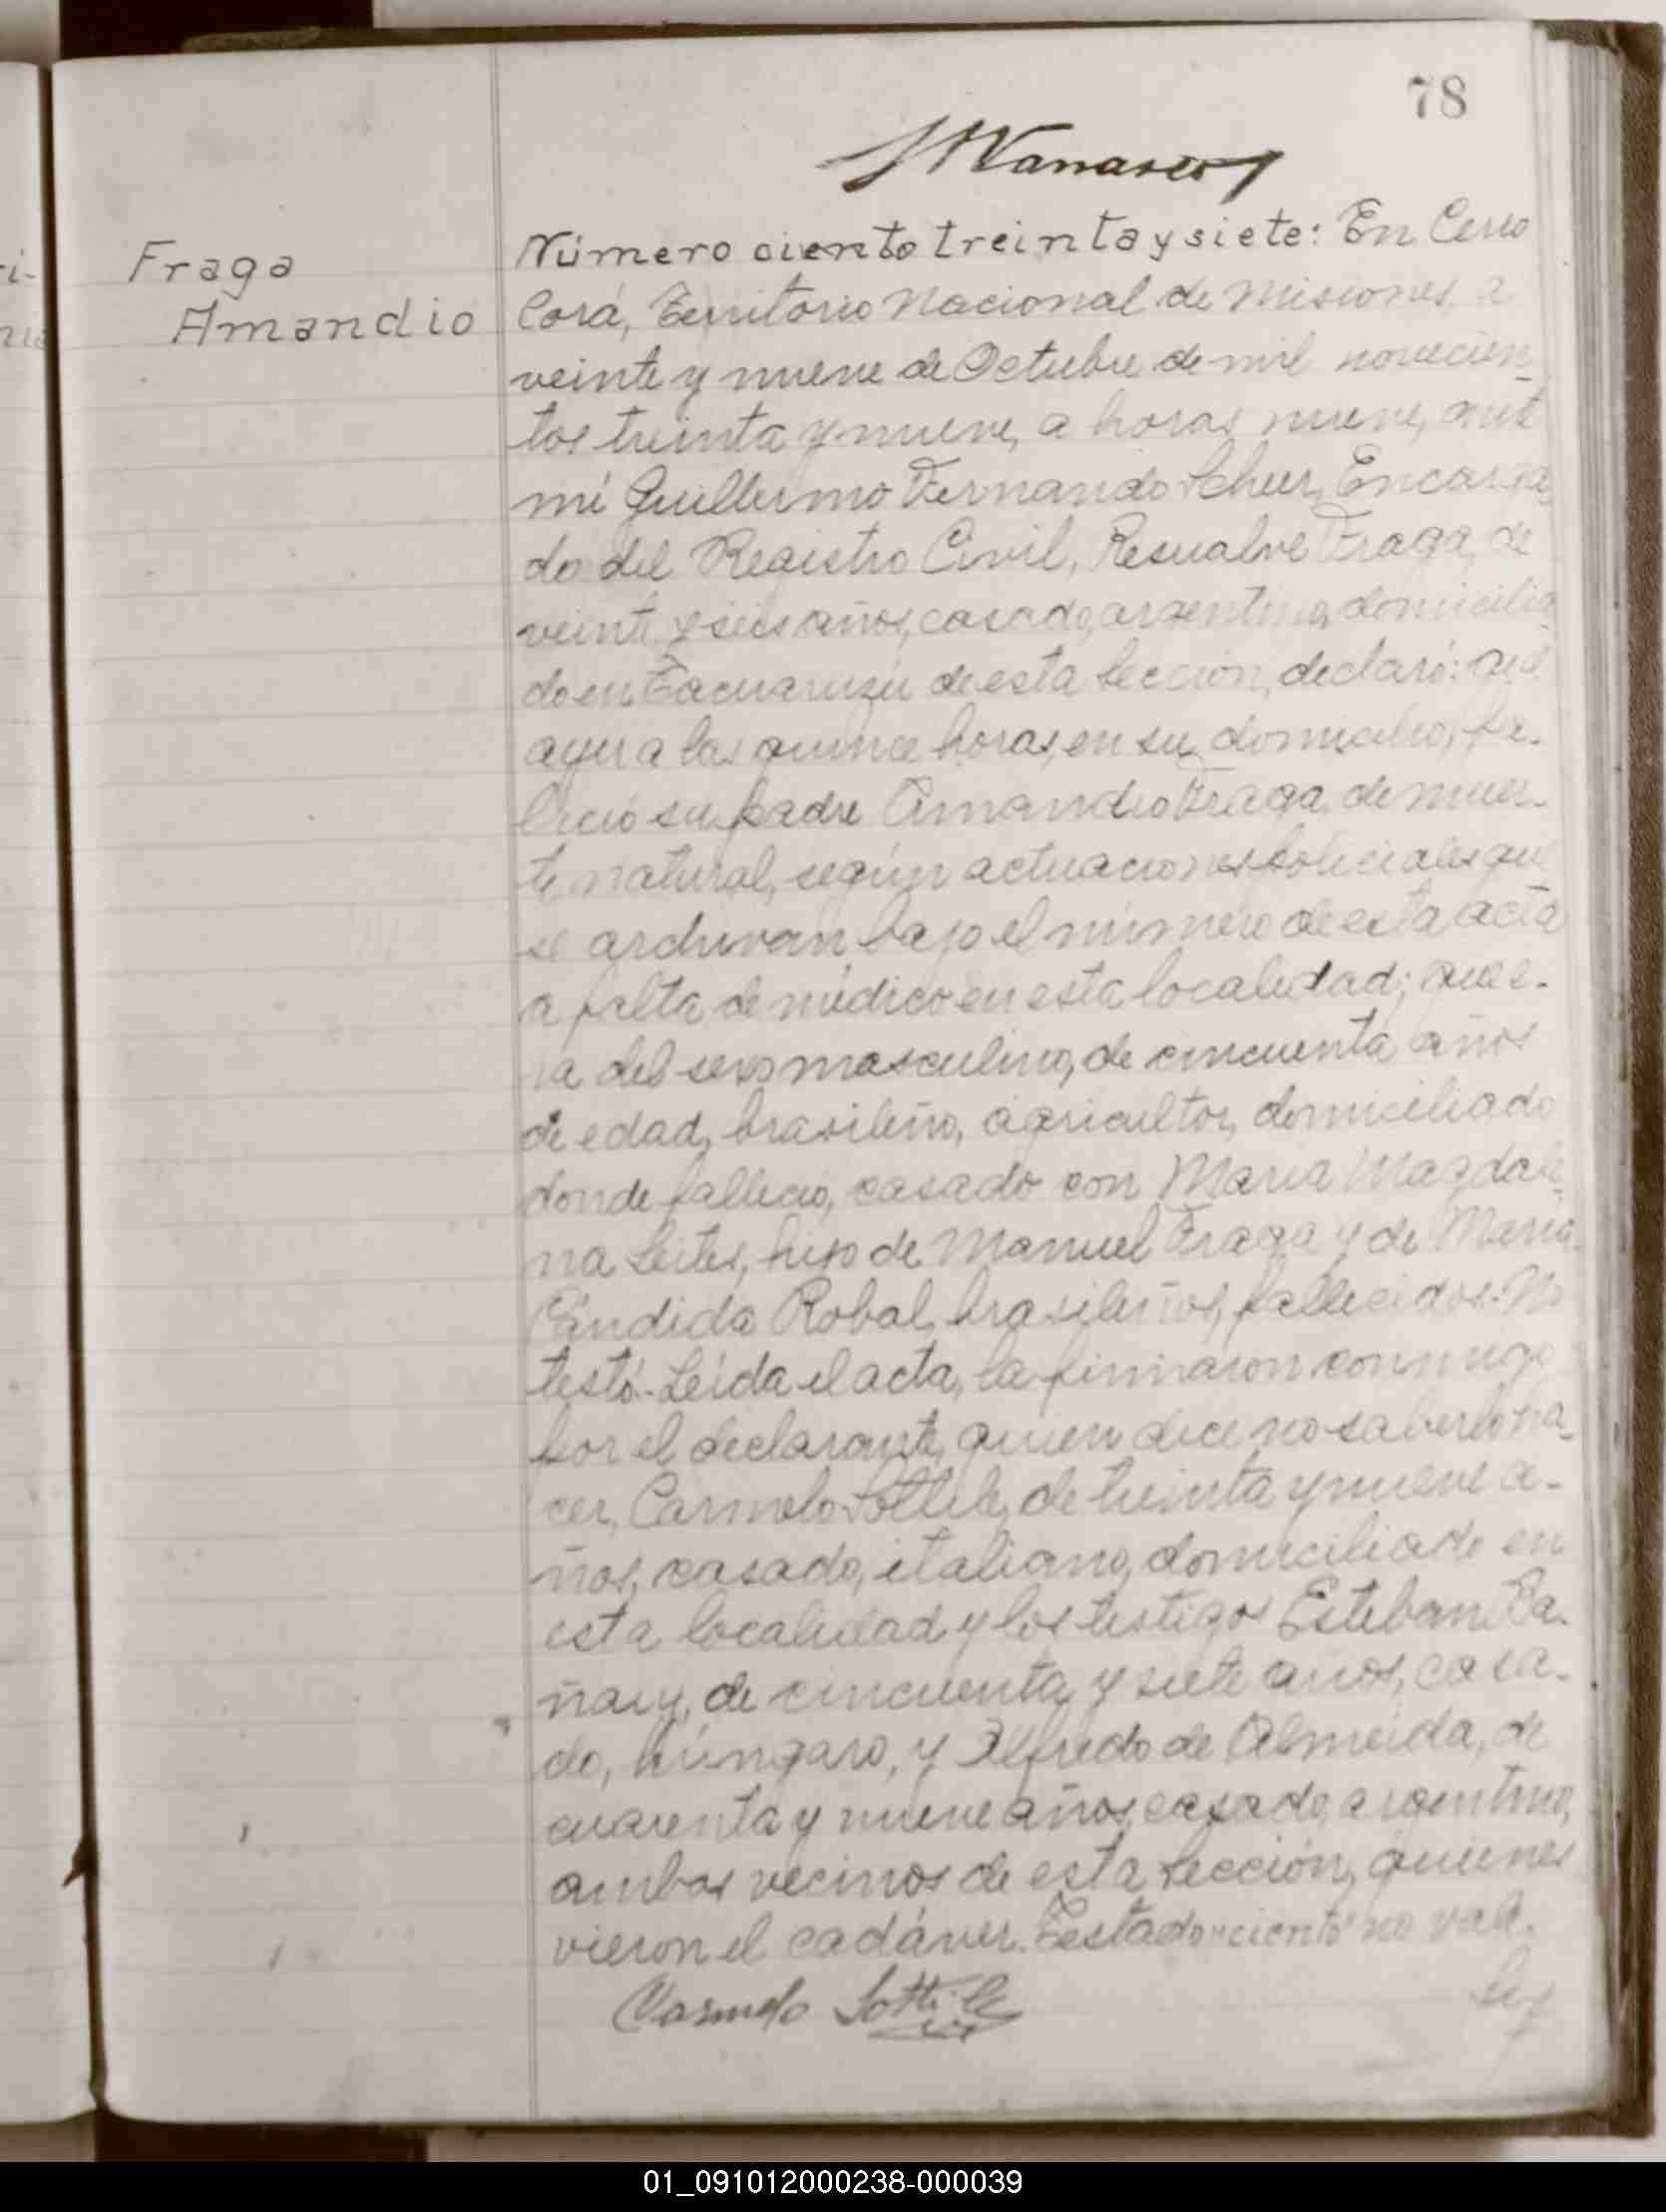 78
Fraga
Amandio
Número ciento treinta y siete: En Cerro
Corá, Territorio Nacional de Misiones a
veinte y nueve de Octubre de mil novecien
tos treinta y nueve, a horas nueve, ante
mí Guillermo Fernando Scheer, Encarga
do del Registro Civil, Resualve Fraga, de
veinte y seis años, casado, argentino, domicilia
do en Tacuaruzú de esta Sección, declaró: que
ayer a las quince horas, en su domicilio, fa-
lleció su padre Amandio Fraga, de muer-
te natural, según actuaciones policiales que
se archivan bajo el número de esta acta
a falta de médico en esta localidad; que e-
ra del sexo masculino, de cincuenta años
de edad, brasileño, agricultor, domiciliado
donde falleció, casado con María Magdale
na Leites, hijo de Manuel Fraga y de María
Cándida Robal, brasileños, fallecidos.- No
testó.- Leída el acta, la firmaron conmigo
por el declarante, quien dice no saberlo ha-
cer, Carmelo Sottile, de treinta y nueve a-
ños, casado, italiano, domiciliado en
esta localidad y los testigos Esteban
de cincuenta y siete años, casa-
do, húngaro, y Alfredo de Almeida, de
cuarenta y nueve años, casado, argentino,
ambos vecinos de esta sección, quienes
vieron el cadáver. Testado "ciento" no vale.
Carmelo Sottile
01_091012000238-000039